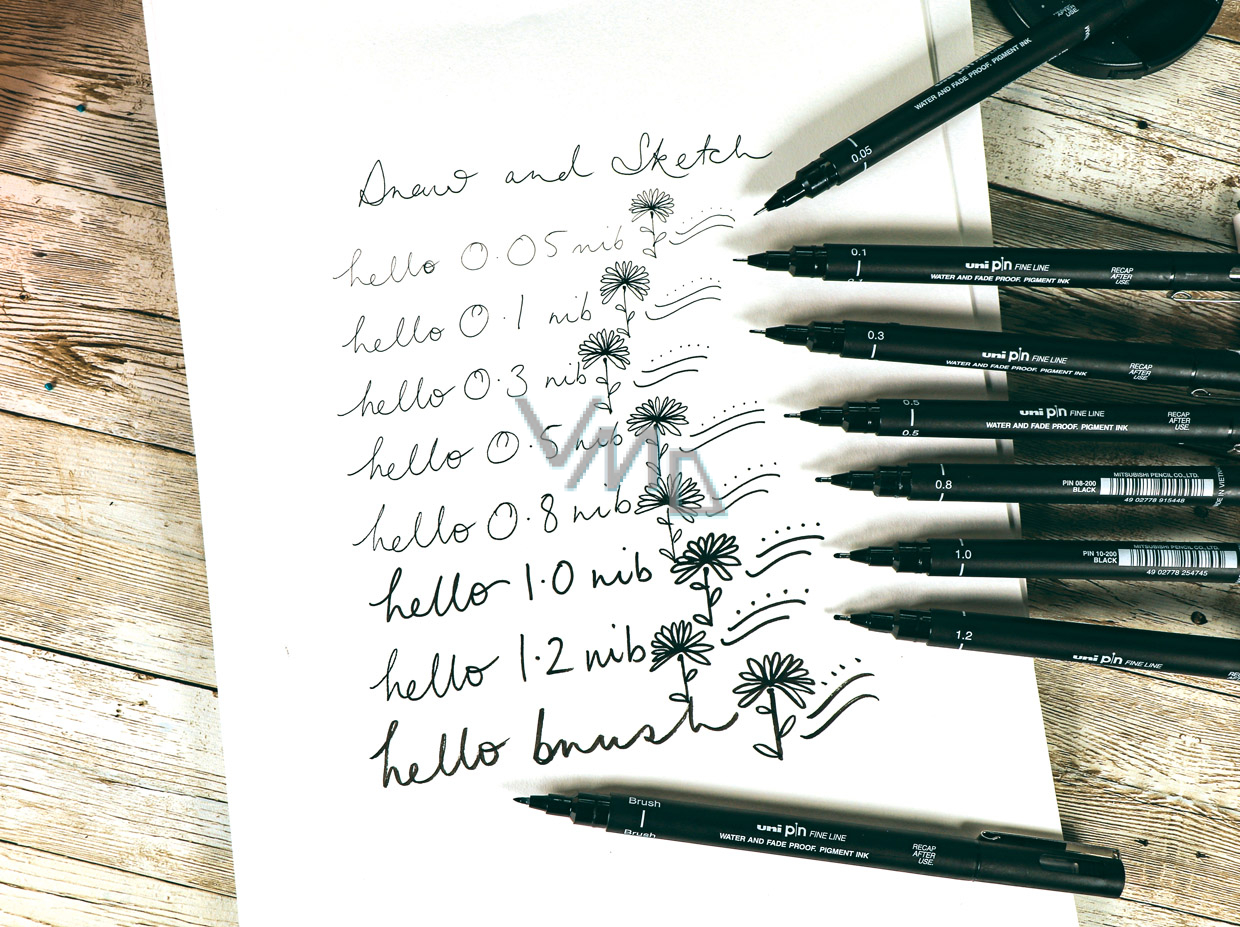 Draw and Sketch
hello 0.05 nib
hello 0.1 nib
hello 0.3 nib
hello 0.5 nib
hello 0.8 nib
hello 1.0 nib
hello 1.2 nib
hello brush
VMD
WATER AND FADE PROOF. PIGMENT INK
0.05
0.1
uni pin FINE LINE
WATER AND FADE PROOF. PIGMENT INK
RECAP
AFTER
USE.
0.3
uni pin FINE LINE
WATER AND FADE PROOF. PIGMENT INK
RECAP
AFTER
USE.
0.5
0.5
uni pin FINE LINE
WATER AND FADE PROOF. PIGMENT INK
RECAP
AFTER
USE.
0.8
PIN 08-200
BLACK
MITSUBISHI PENCIL CO., LTD.
49 02778 915448
1.0
PIN 10-200
BLACK
MITSUBISHI PENCIL CO., LTD.
49 02778 254745
1.2
uni pin FINE LINE
Brush
Brush
uni pin FINE LINE
WATER AND FADE PROOF. PIGMENT INK
RECAP
AFTER
USE.